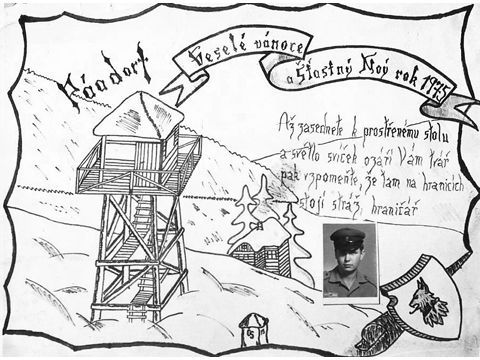 Veselé vánoce
a Šťastný Nový rok 1975
Až zasednete k prostřenému stolu
a světlo svíček ozáří Vám tvář
pak vzpomeňte, že tam na hranicích
stojí stráž, hraničář